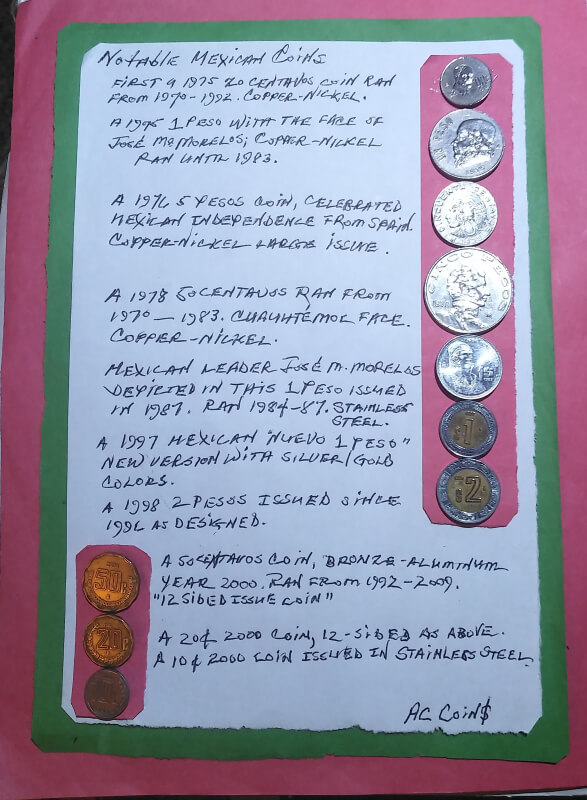 Notable Mexican Coins
First a 1975 20 centavos coin ran
from 1970-1992. Copper-nickel.
1 peso with the face of
José M. Morelos; copper-nickel
ran until 1983.
A 1976 5 pesos coin, celebrated
Mexican independence from Spain.
Copper-nickel large issue.
A 1978 50 centavos ran from
1970-1983. Cuauhtemoc face.
Copper-nickel.
Mexican leader José M. Morelos
depicted in this 1 peso issued
in 1987. Ran 1984-87. Stainless
steel.
A 1997 Mexican "Nuevo 1 Peso"
new version with silver/gold
colors.
A 1998 2 pesos issued since
1996 as designed.
A 50 centavos coin, bronze-aluminum
year 2000. Ran from 1992-2009.
"12 sided issue coin"
A 20¢ 2000 coin, 12-sided as above.
A 10¢ 2000 coin issued in stainless steel.
AC Coin$
UN PESO
CINCUENTA CENTAVOS
CINCO PESOS
$1
$1
$2
50¢
20¢